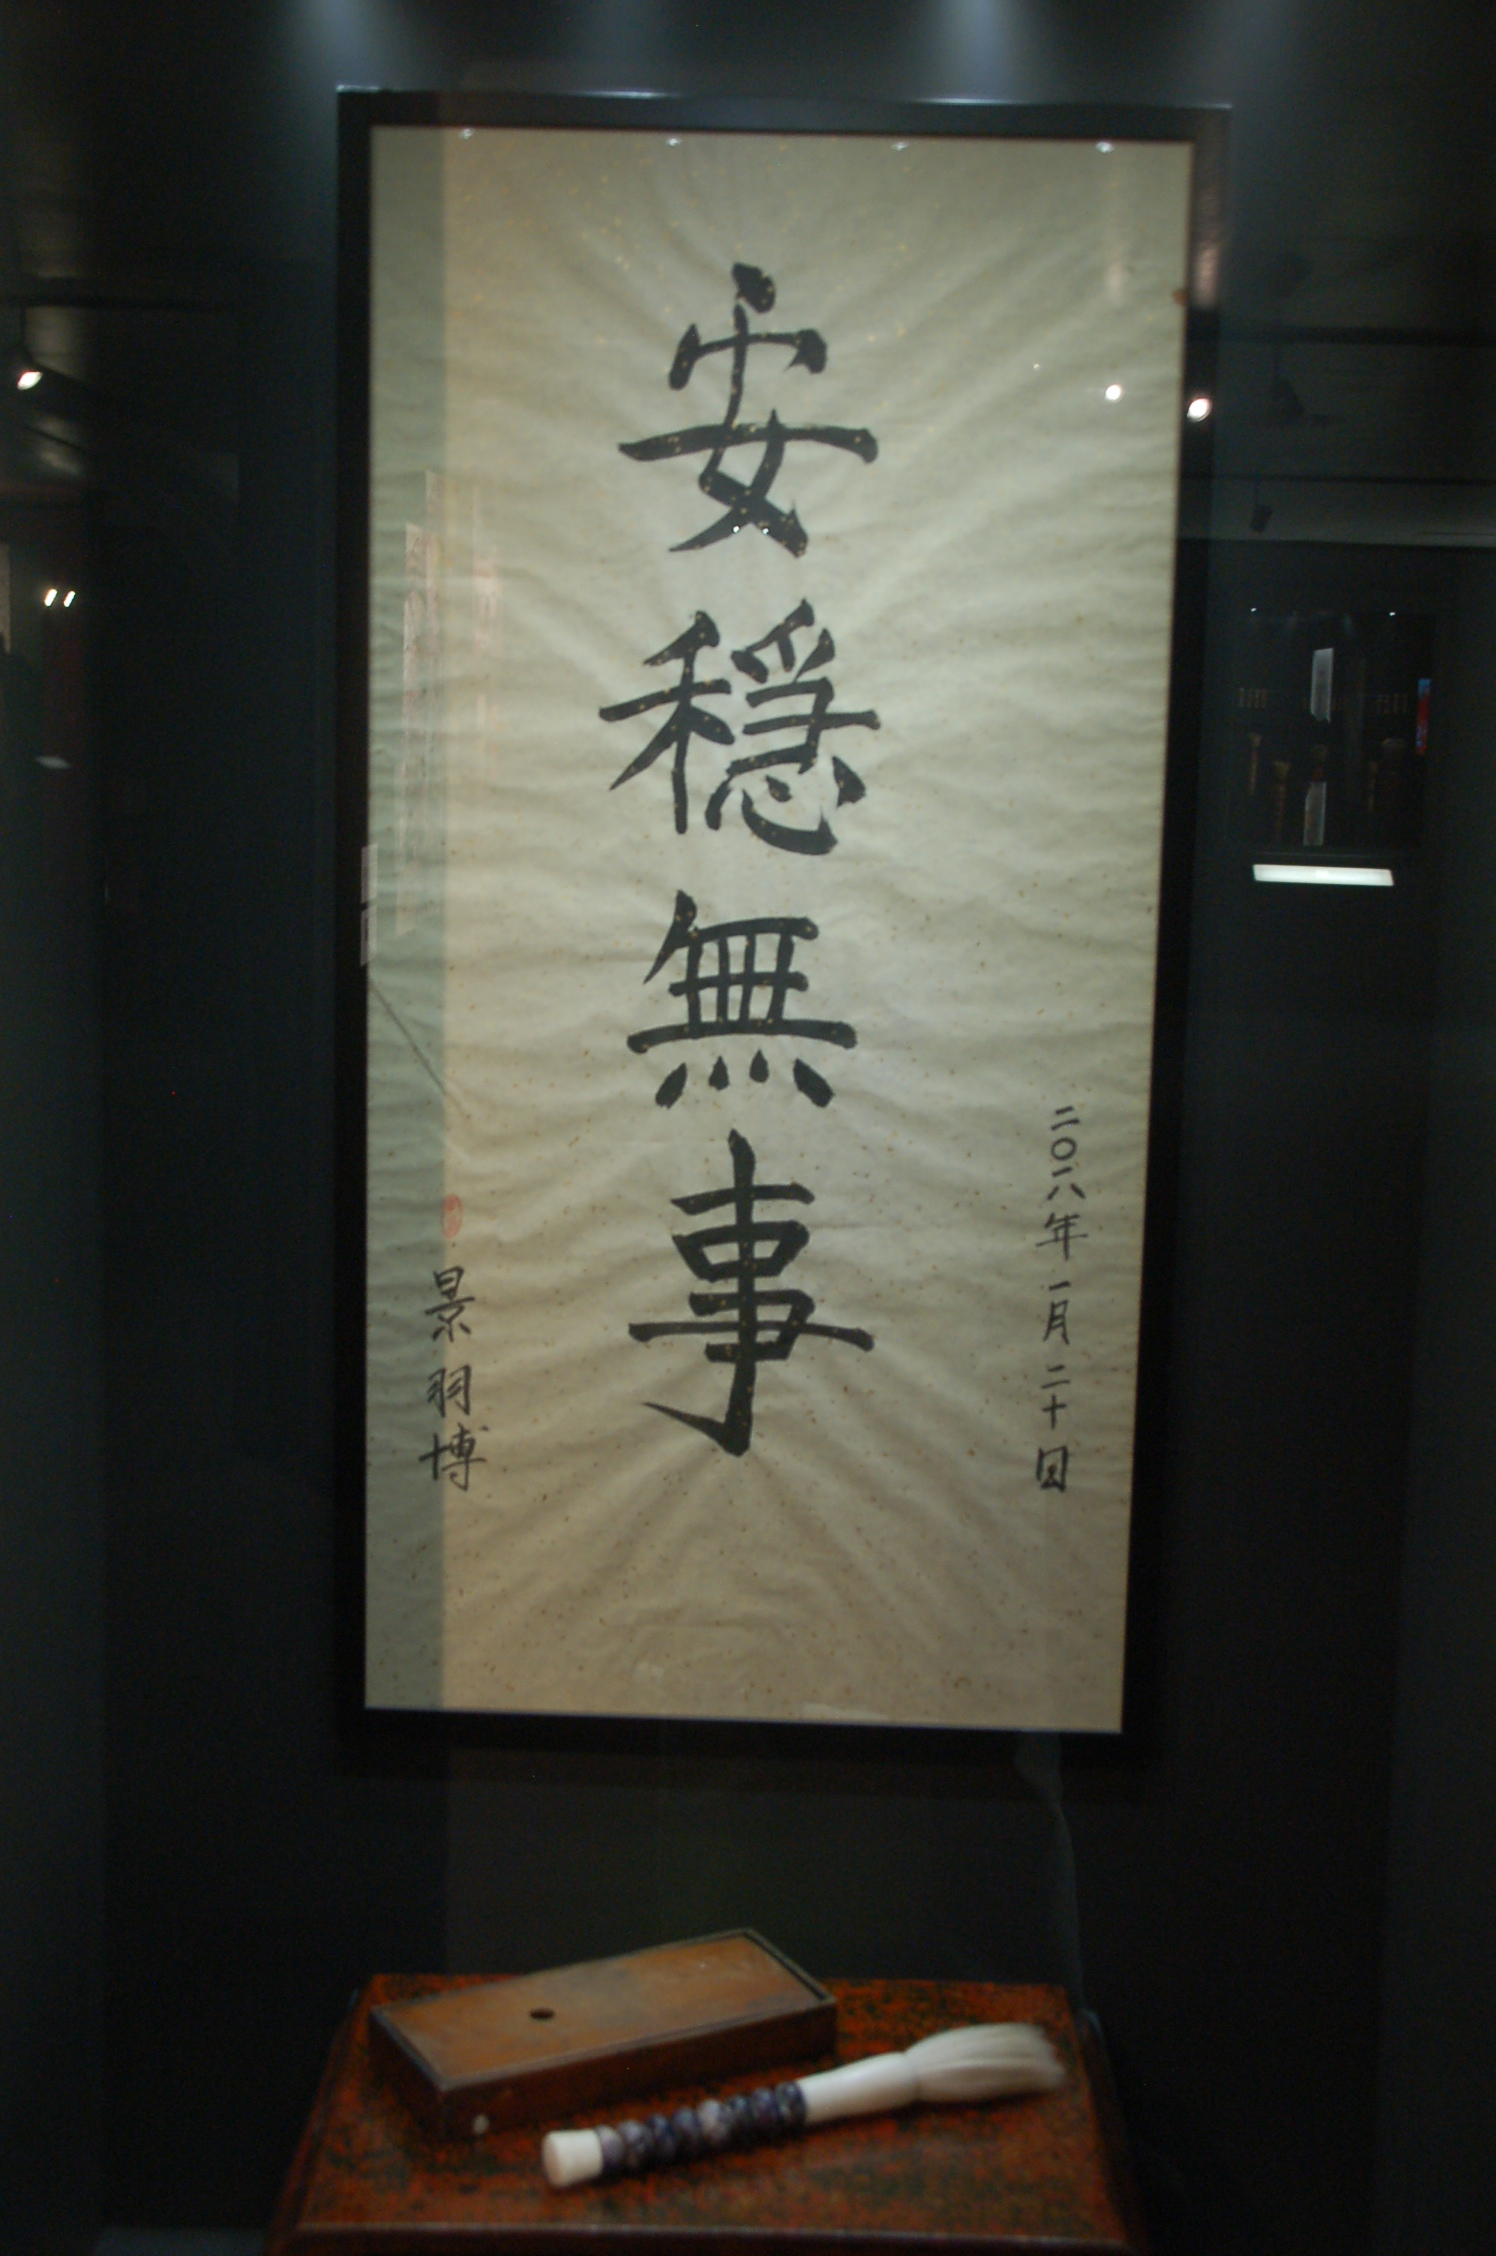 二〇一八年一月二十日
安穏無事
景羽博